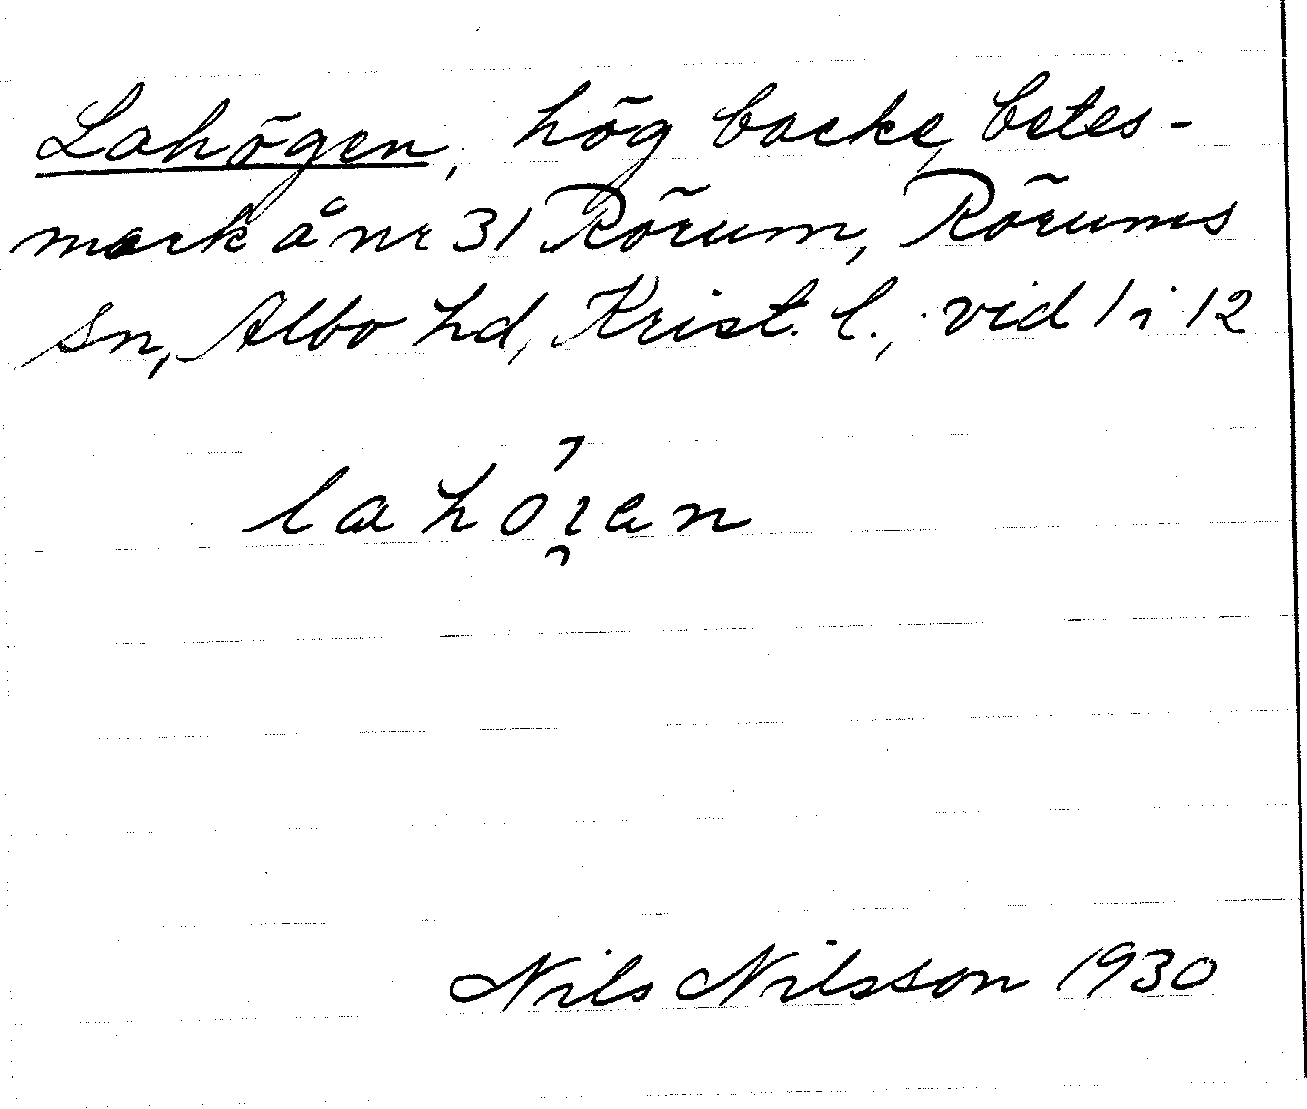 Lahögen, hög backe, betes-
mark å nr 31 Rörum, Rörums
sn, Albo hd, Krist. l., vid 1 i 12
Nils Nilsson 1930